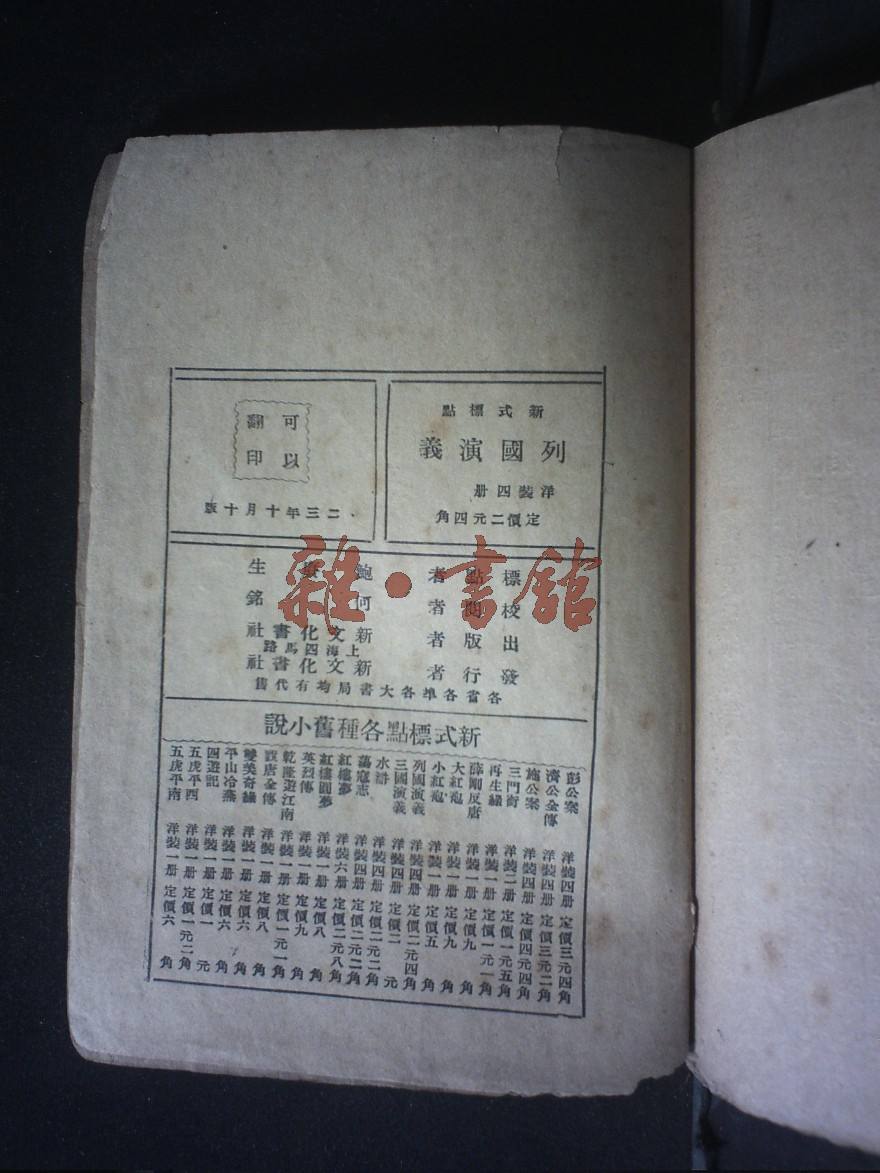 新式標點
列國演義
洋裝四册
定價二元四角
可以
翻印
二三年十月十版
標點者 鮑賡生
校閱者 何銘
出版者 新文化書社
上海四馬路
發行者 新文化書社
各省各埠各大書局均有代售
新式標點各種舊小說
彭公案 洋裝四册 定價三元四角
濟公全傳 洋裝四册 定價三元二角
施公案 洋裝四册 定價四元四角
三門街 洋裝二册 定價一元五角
再生緣 洋裝一册 定價一元一角
薛剛反唐 洋裝一册 定價九角
大紅袍 洋裝一册 定價九角
小紅袍 洋裝一册 定價五角
列國演義 洋裝四册 定價二元四角
三國演義 洋裝四册 定價二元
水滸 洋裝四册 定價二元二角
蕩寇志 洋裝四册 定價二元二角
紅樓夢 洋裝六册 定價二元八角
紅樓圓夢 洋裝一册 定價八角
英烈傳 洋裝一册 定價九角
乾隆遊江南 洋裝一册 定價一元一角
說唐全傳 洋裝一册 定價八角
雙美奇緣 洋裝一册 定價六角
平山冷燕 洋裝一册 定價六角
四遊記 洋裝一册 定價一元
五虎平西 洋裝一册 定價一元二角
五虎平南 洋裝一册 定價六角
雜·書館